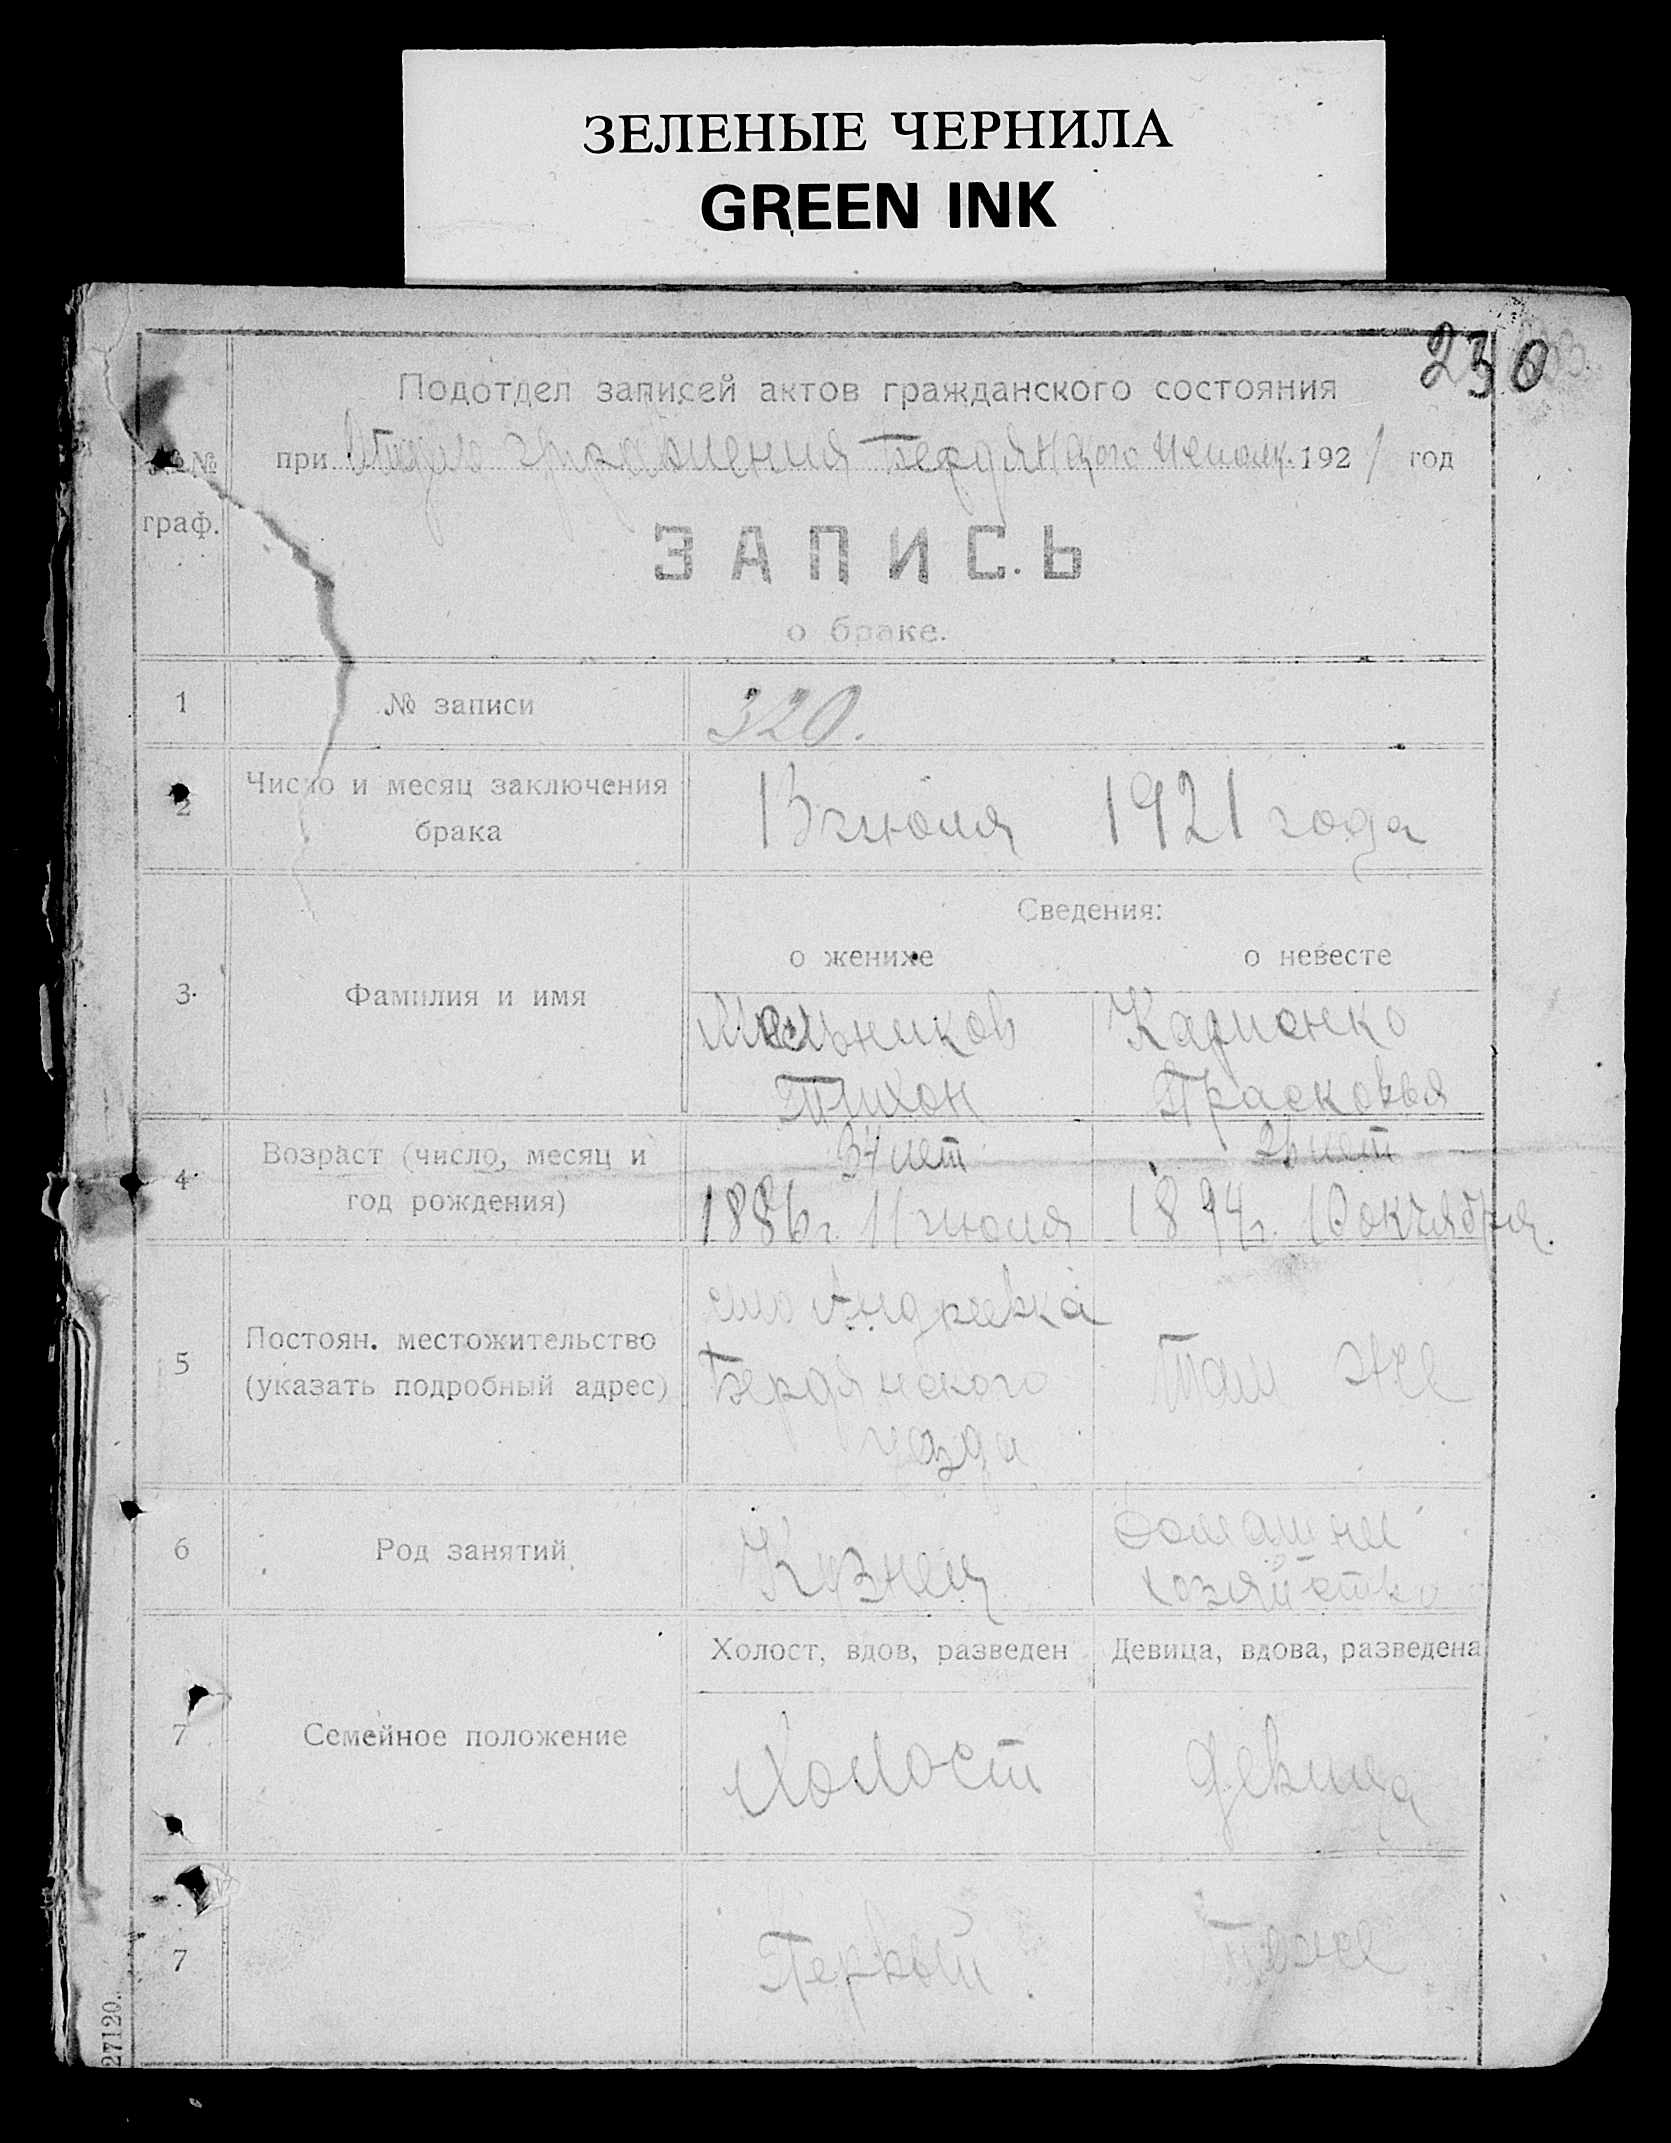 ЗЕЛЕНЫЕ ЧЕРНИЛА
GREEN INK
230
Подотдел записей актов гражданского состояния
№№ граф.
при Отдел управления Бердянского исполк. 1921 год
ЗАПИСЬ
о браке.
1 № записи 320.
2 Число и месяц заключения брака
13 июля 1921 года
Сведения:
о женихе о невесте
3 Фамилия и имя
Мельников
Тихон
Карпенко
Прасковья
4 Возраст (число, месяц и год рождения)
34 лет
26 лет
1886 г. 11 июля
1894 г. 10 октября.
5 Постоян. местожительство
(указать подробный адрес)
село Андреевка
Бердянского
уезда
Там же
6 Род занятий
Кузнец
домашнее
хозяйство
Холост, вдов, разведен Девица, вдова, разведена
7 Семейное положение
Холост
девица
7
Первый
Тоже
27120.